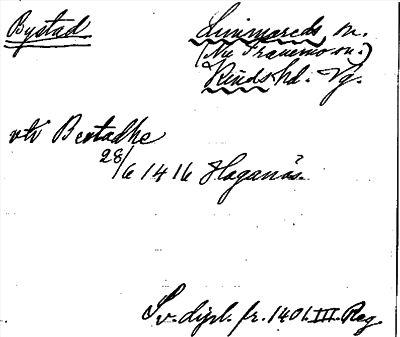 Bystad
Limmareds sn.
(Nu Tranemo sn.)
Kinds hd. Vg.
utv Bestadhe
28/6 1416 Haganäs.
Sv. dipl. fr. 1401. III. Reg.